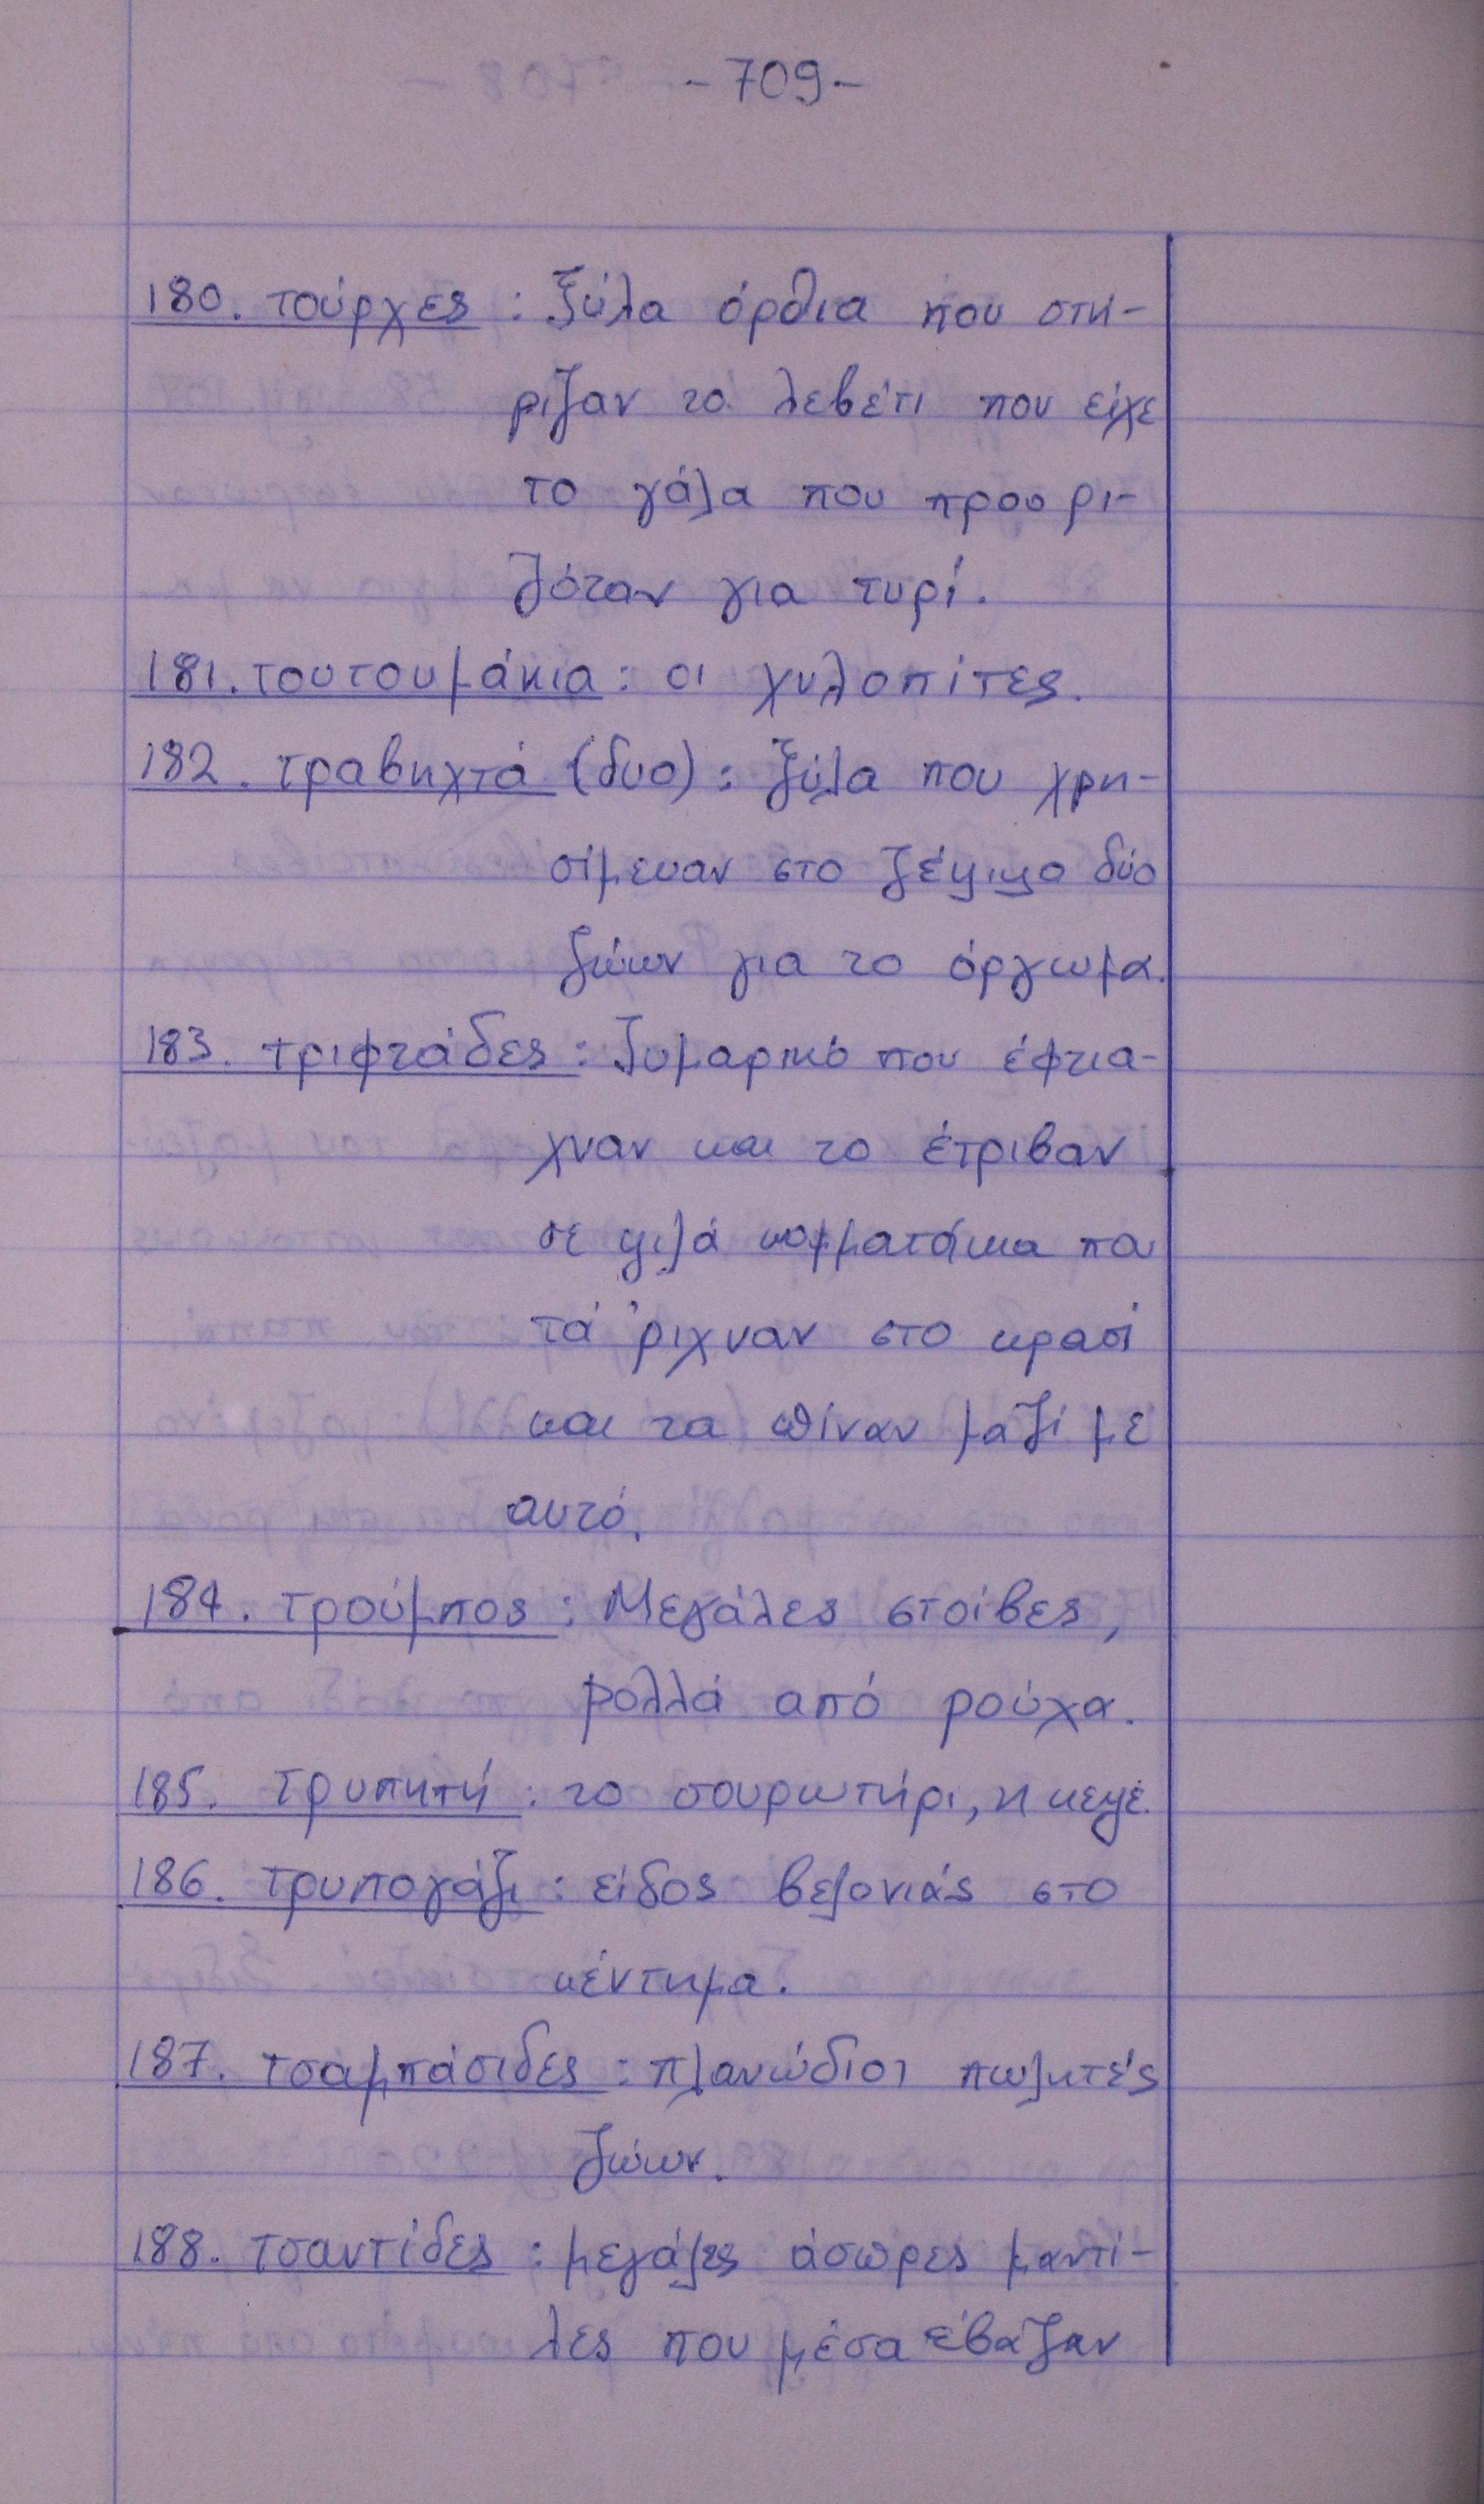 -709-
180. τούρχες : ξύλα όρθια που στη-
ριζαν το λεβέτι που είχε
το γάλα που προορι-
ζόταν για τυρί.
181. τουτουμάκια : οι χυλοπίτες.
182. τραβηχτά (δυο) : ξύλα που χρη-
σίμευαν στο ζέψιμο δύο
ζώων για το όργωμα.
183. τριφτάδες : ζυμαρικό που έφτια-
χναν και το έτριβαν
σε ψιλά κομματάκια που
τά 'ριχναν στο κρασί
και τα πίναν μαζί με
αυτό.
184. τρούμπος : Μεγάλες στοίβες,
ρολλά από ρούχα.
185. τρυπητή : το σουρωτήρι, η κεψέ.
186. τρυπογάζι : είδος βελονιάς στο
κέντημα.
187. τσαμπάσιδες : πλανώδιοι πωλητές
ζώων.
188. τσαντίδες : μεγάλες άσπρες μαντί-
λες που μέσα έβαζαν